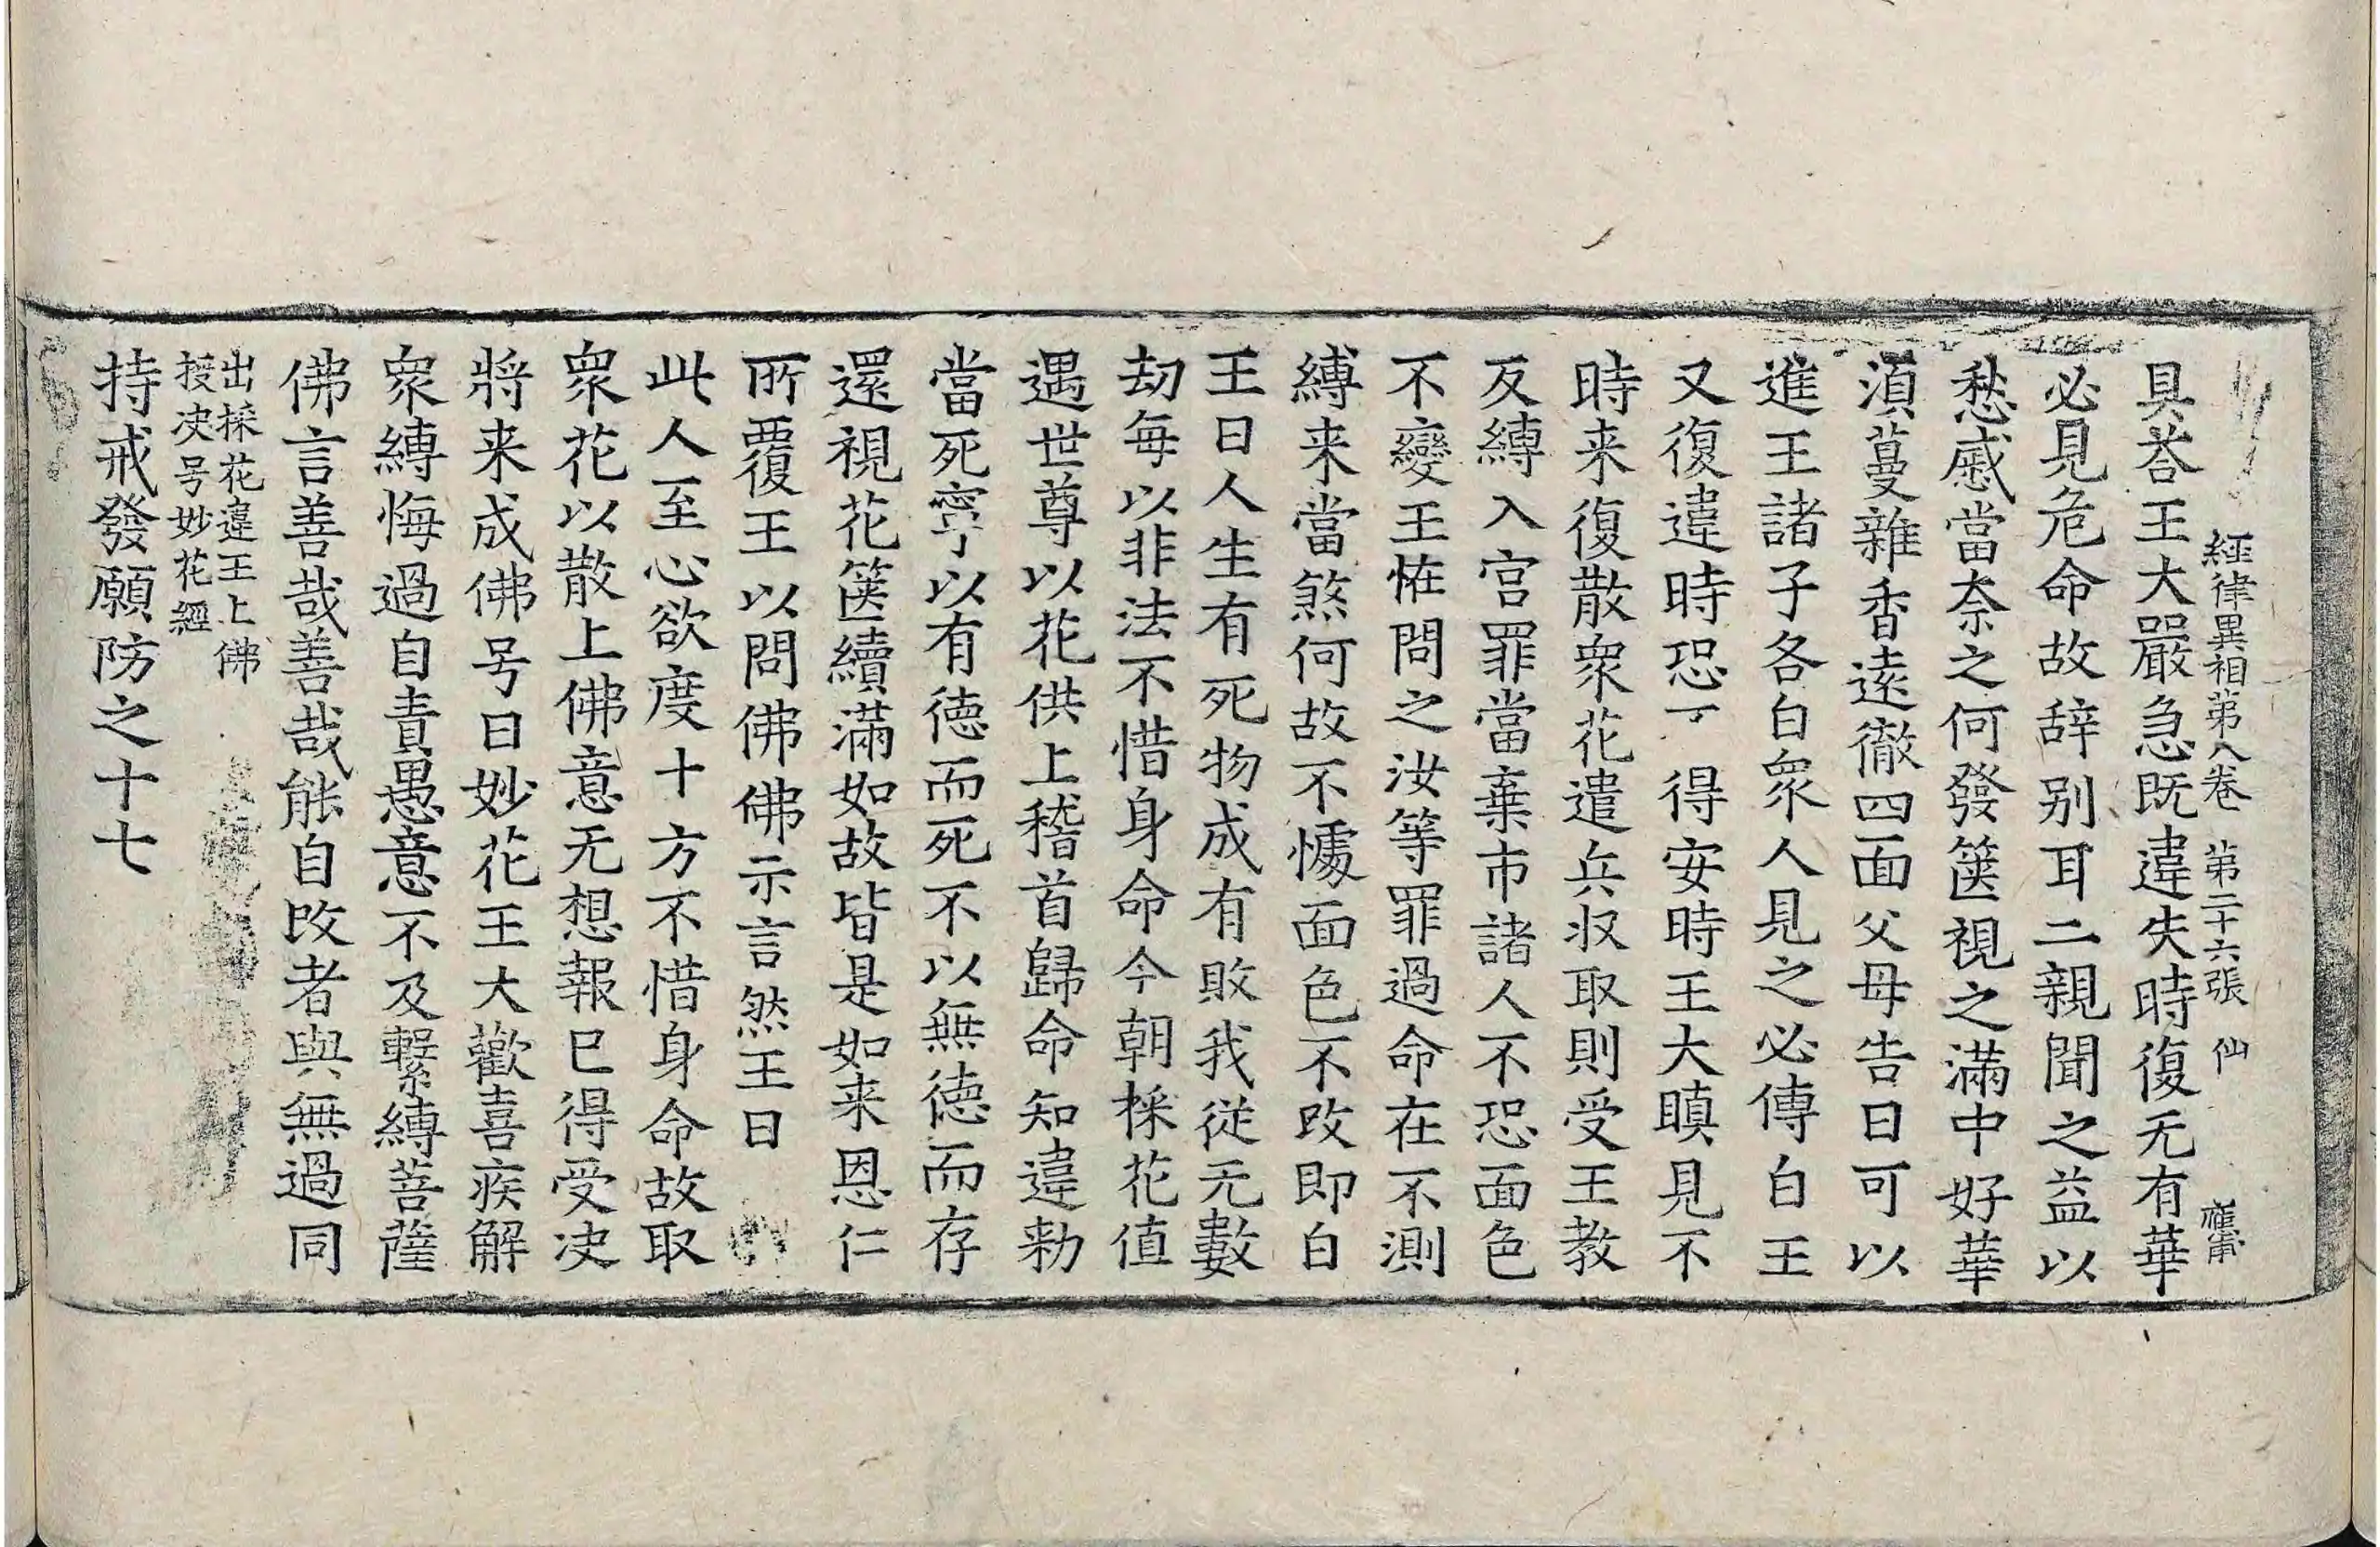 經律異相第八卷 第二十六張 仙
具荅王大嚴急旣違失時復无有華
必見危命故辝别耳二親聞之益以
愁慼當柰之何發篋視之滿中好華
湏蔓雜香逺徹四面父母告曰可以
進王諸子各白衆人見之必傳白王
又復違時恐丆得安時王大瞋見不
時来復散衆花遣兵収取則受王教
反縛入宫罪當棄市諸人不恐面色
不變王恠問之汝等罪過命在不測
縛来當煞何故不懅面色不改即白
王曰人生有死物成有敗我從无數
劫每以非法不惜身命今朝採花值
遇世尊以花供上稽首歸命知違勑
當死寧以有德而死不以無徳而存
還視花篋續滿如故皆是如来恩仁
所覆王以問佛佛示言然王曰
此人至心欲度十方不惜身命故取
衆花以散上佛意无想報已得受决
將来成佛号曰妙花王大歡喜疾解
衆縛悔過自責愚意不及繫縛菩薩
佛言善哉善哉能自改者與無過同
出採花違王上佛
授决号妙花經
持戒發願防之十七